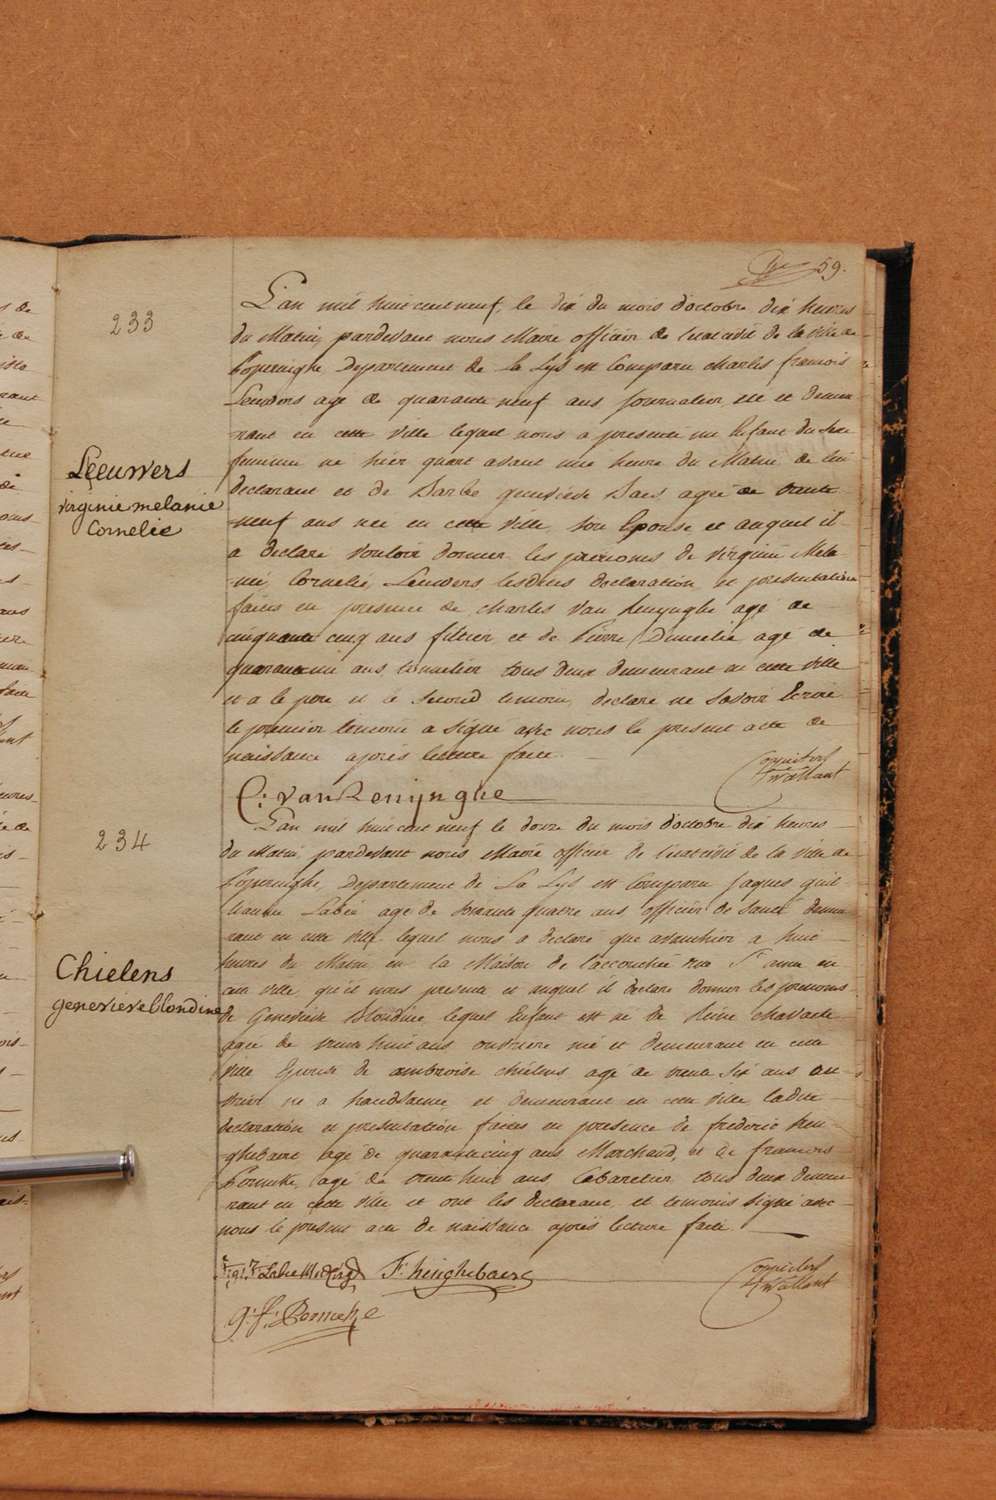 59.
233
Leeuwers
virginie melanie
Cornelie
L'an mil huit cent neuf, le dix du mois d'octobre dix heures
du Matin, pardevant nous Maire officier de l'état civil de la ville de
Poperinghe Departement de la Lys est comparu charles francois
Leuwers agé de quarante neuf ans journalier, né et demeu-
rant en cette ville lequel nous a presenté un Enfant du sexe
feminin né hier quart avant une heure du Matin de lui
declarant et de Barbe genevieve Baes agée de trente
neuf ans née en cette ville son Epouse et auquel il
a declaré vouloir donner les prenoms de virginie Mela-
nie, Cornelie, Leuwers lesdites declaration et presentation
faites en presence de charles van Renynghe agé de
cinquante cinq ans filtier et de Pierre agé de
ans tonnelier tous deux demeurant en cette ville
et a le pere et le second temoin, declaré ne savoir Ecrire
le premier temoin a signé avec nous le present acte de
naissance après lecture faite.
C: van Renijnghe
234
Chielens
genevieve blondine
L'an mil huit cent neuf le douze du mois d'octobre dix heures
du Matin, pardevant nous Maire officier de l'état civil de la ville de
Poperinghe, Departement de La Lys est comparu Jaques guil-
liaume Labée agé de soixante quatre ans officier de santé demeu-
rant en cette ville lequel nous a declaré que avanthier a huit
heures du Matin en la Maison de l'accouchée rue Ste anne en
cette ville, qu'il nous presente et auquel il declare donner les prenoms
de Genevieve Blondine, lequel Enfant est né de Reine
agée de trente huit ans ouvriere née et demeurant en cette
ville Epouse de ambroise chielens agé de trente six ans ou-
vrier né a et demeurant en cette ville ladite
declaration et presentation faites en presence de frederic hen-
ghebaert agé de quarante cinq ans Marchand, et de francois
agé de trente huit ans, Cabaretier tous deux demeu-
rant en cette ville et ont les declarant, et temoins signé avec
nous le present acte de naissance après lecture faite.
F: henghebaert